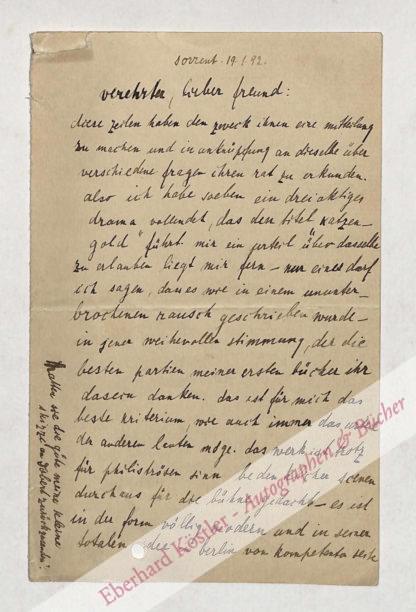 sorrent. 19.1.92.
verehrter, lieber freund:
diese zeilen haben den zweck ihnen eine mitteilung
zu machen und in anknüpfung an dieselbe über
verschiedne fragen ihren rat zu erkunden.
also ich habe soeben ein dreiaktiges
drama vollendet, das den titel „katzen-
gold" führt. mir ein urteil über dasselbe
zu erlauben liegt mir fern – nur eines darf
ich sagen, dass es wie in einem ununter-
brochenen rausch geschrieben wurde –
in jener weihevollen stimmung, der die
besten partien meiner ersten bücher ihr
dasein danken. das ist für mich das
beste kriterium, wie auch immer das
der anderen lauten möge. das werk ist trotz
für philiströsen sinn seinen
durchaus für die bühne gedacht – es ist
in der form völlig modern und in seiner
totalen berlin von kompetenter seite
hätten sie die güte meine kleine
skizze sofort zurückzusenden!
Eberhard Köstler - Autographen & Bücher